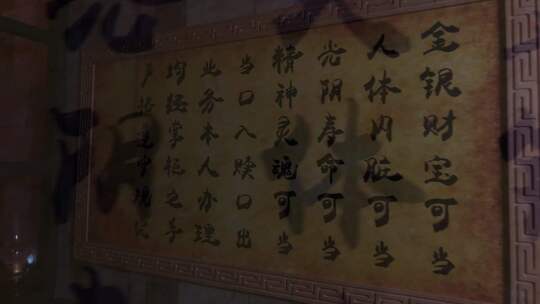 金银财宝可当
人体内脏可当
光阴寿命可当
精神灵魂可当
当口入赎口出
业务本人办理
均经掌柜之手
严格遵守规定